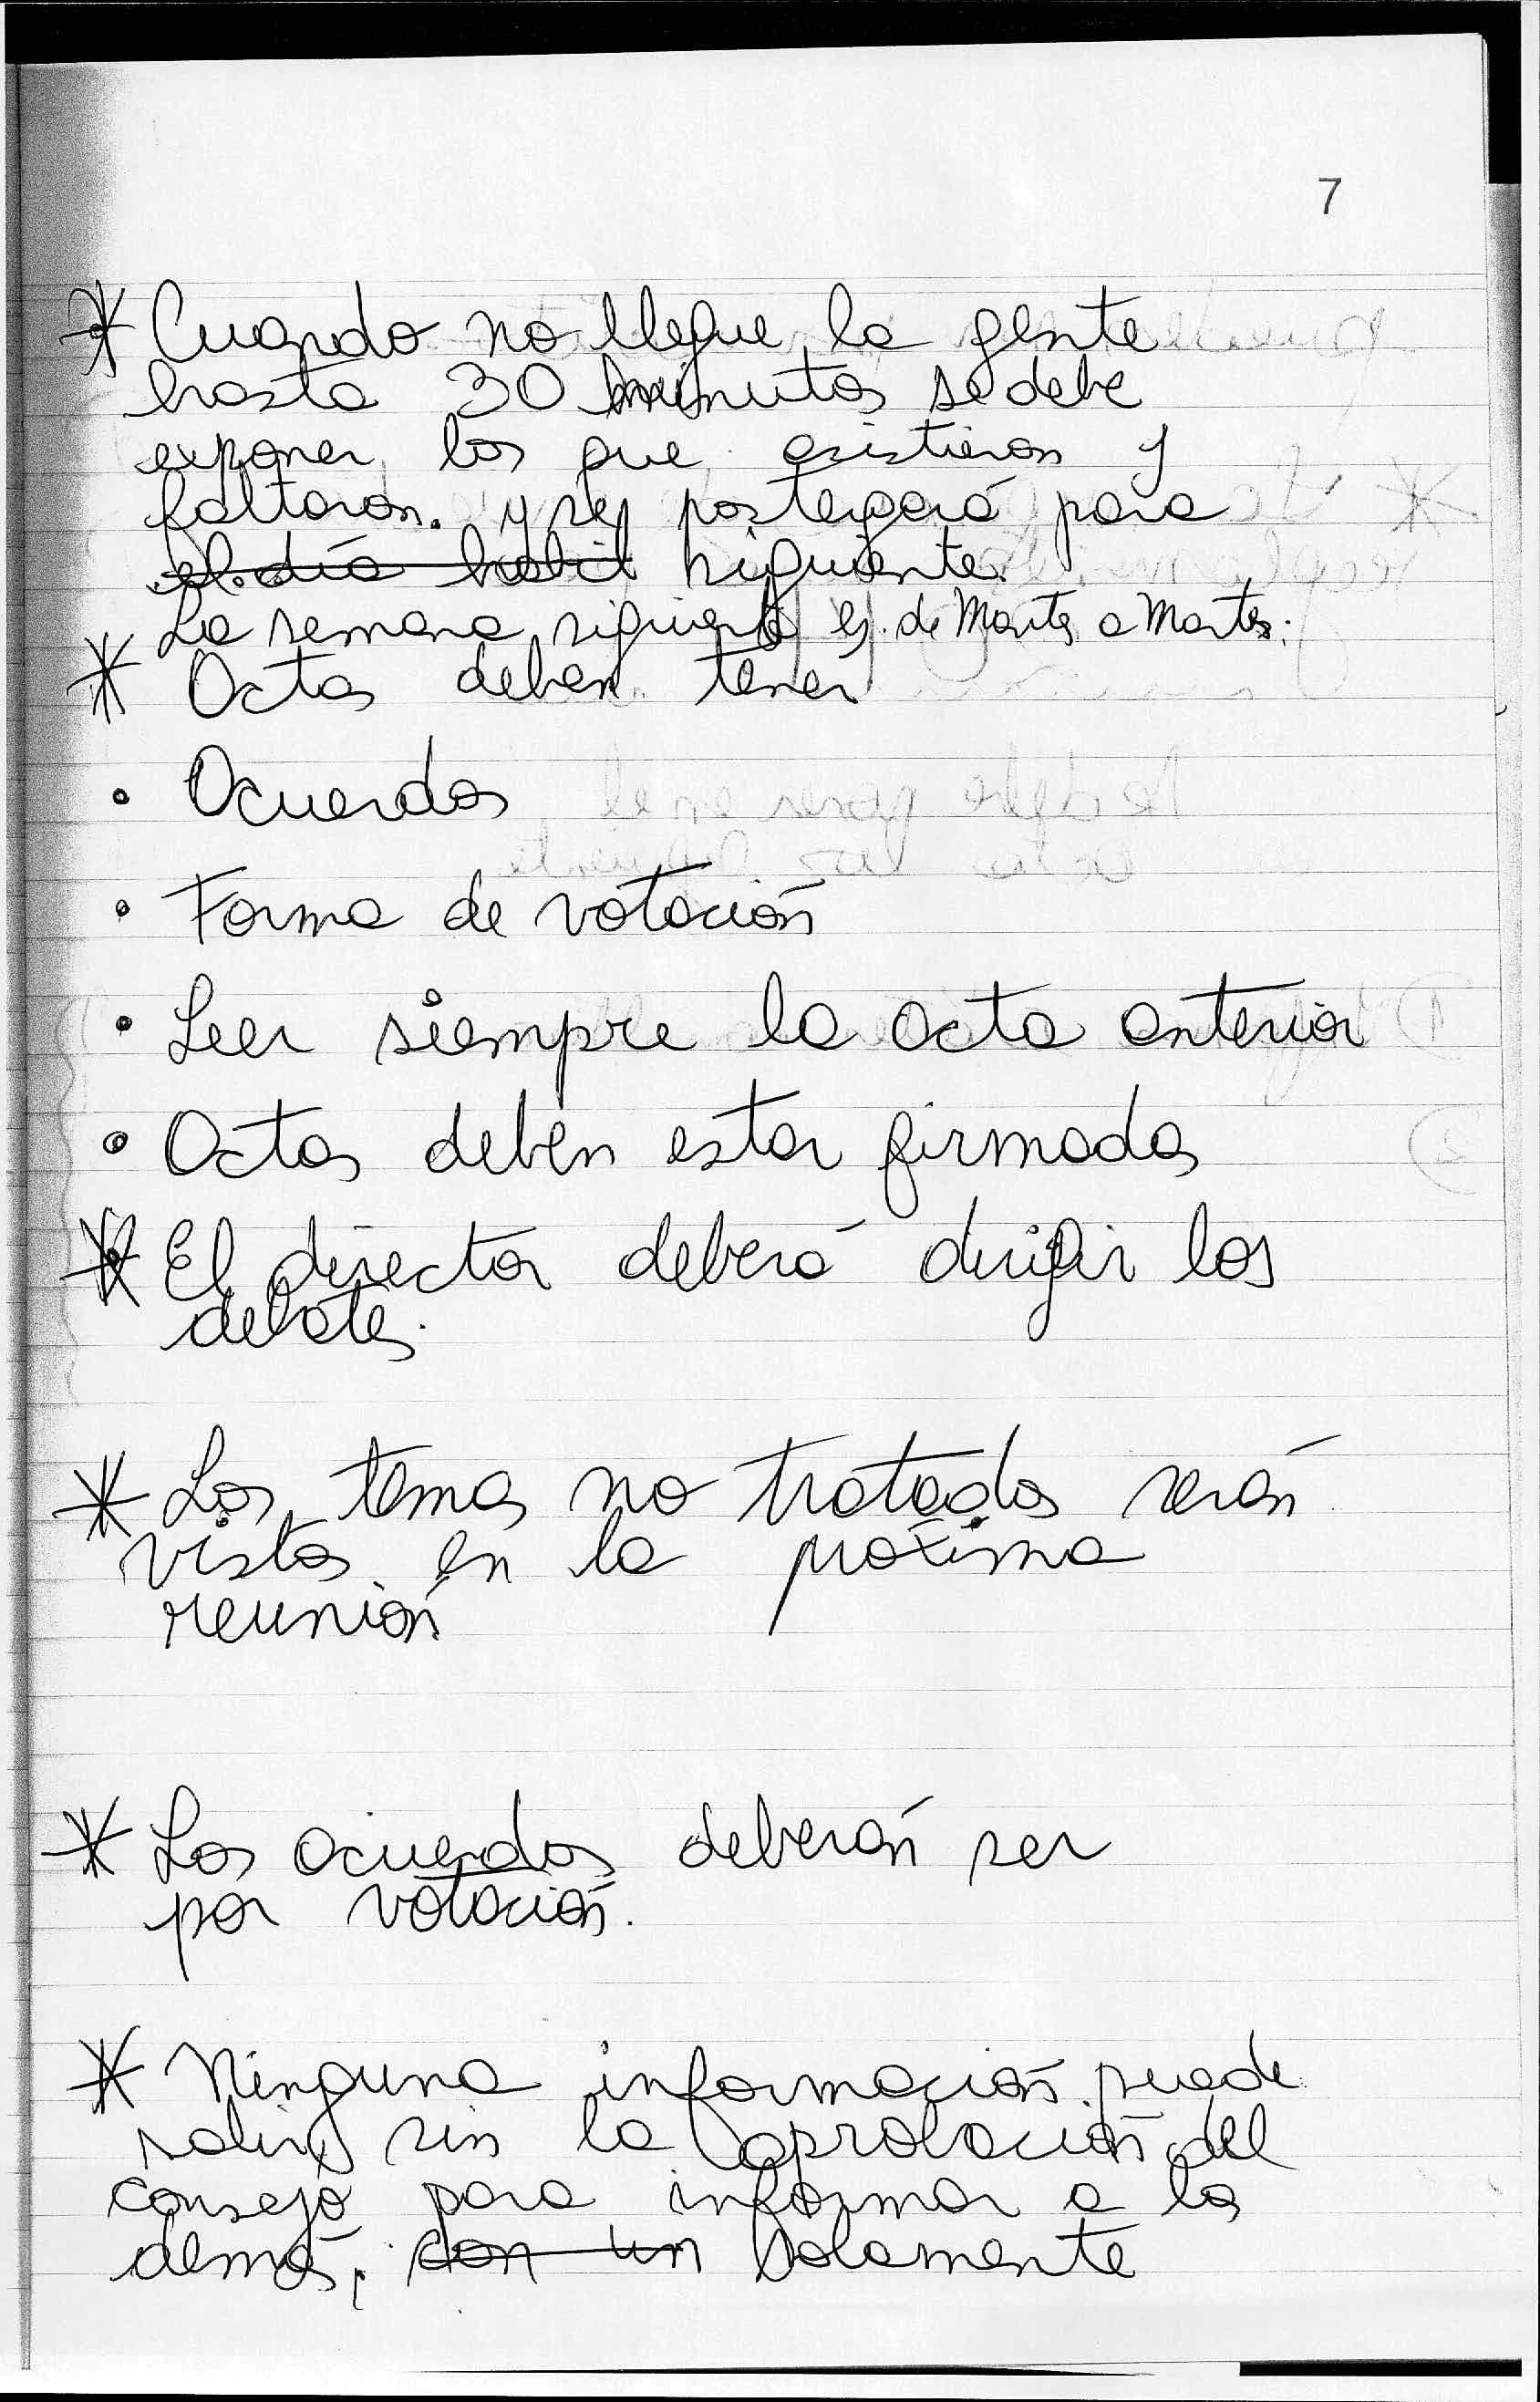 7
* Cuando no llegue la gente
hasta 30 minutos se debe
exponer los que asistieron y
faltaron. y se postergará para
el día habil siguiente.
La semana siguiente es de Martes a Martes.
* Actas deben tener
• Acuerdos
• Forma de votación
• Leer siempre la acta anterior
• Actas deben estar firmadas
* El director deberá dirigir los
debates.
* Los temas no tratados serán
vistos en la próxima
reunión
* Los acuerdos deberán ser
por votación.
* Ninguna información puede
salir sin la aprobación del
consejo para informar a los
demás, con un solamente